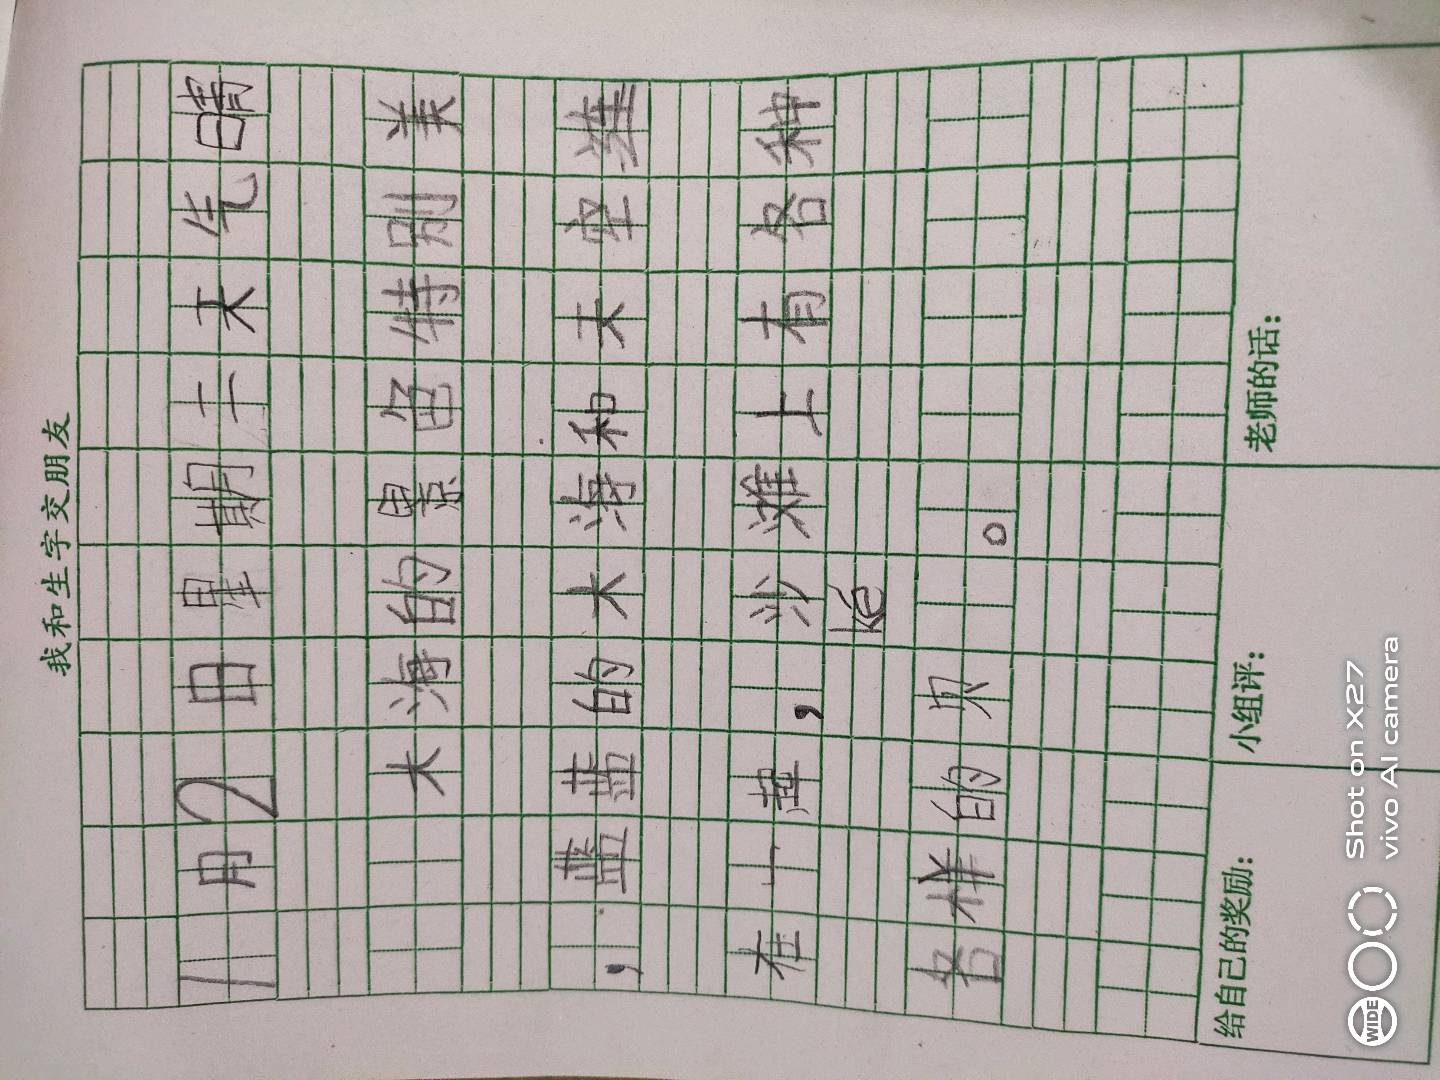 我和生字交朋友
1月2日星期二天气晴
大海的景色特别美
,蓝蓝的大海和天空连
在一起,沙滩上有各种
ke
各样的贝。
给自己的奖励:
小组评:
老师的话:
WIDE
Shot on X27
vivo AI camera